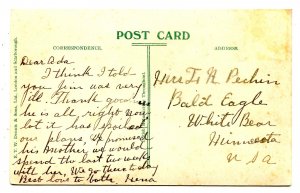 POST CARD
CORRESPONDENCE.
ADDRESS.
Dear Ada
I think I told
you Jim was very
ill. Thank goodness
he is all right now
but it has spoiled
our plans. I promised
his Mother we would
spend the last two weeks
with her. We go there to day
Best love to both. Nena
Mrs F. N. Pechin
Bald Eagle
White Bear
Minnesota
U.S.A